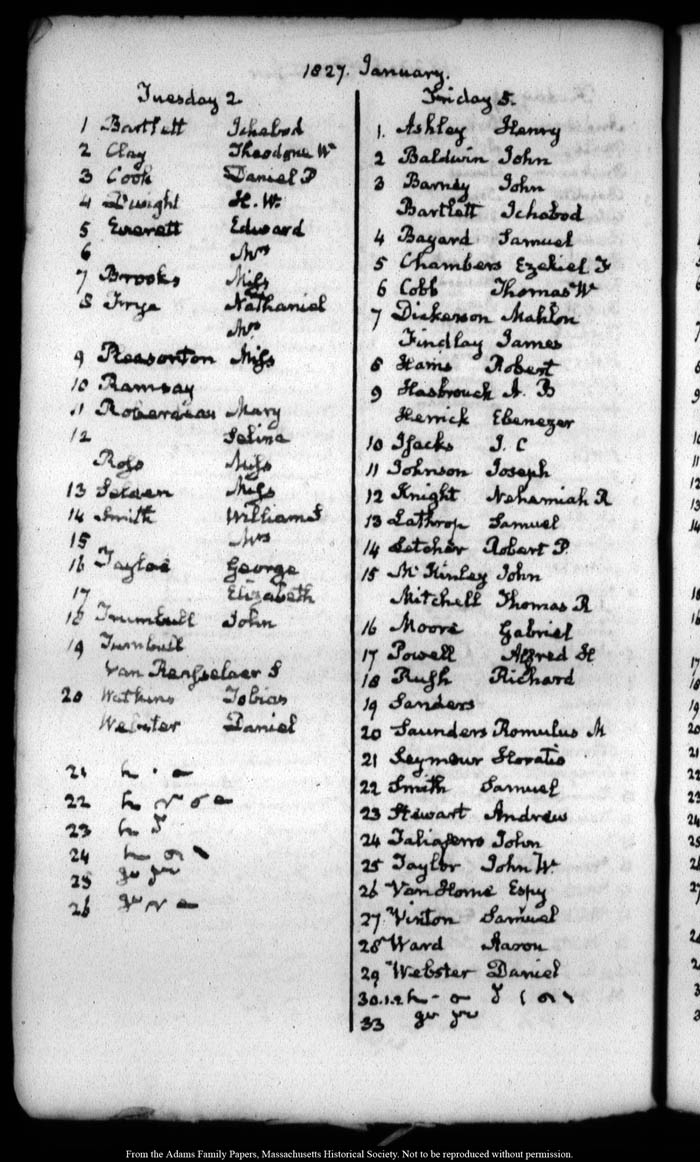 1827. January.
Tuesday 2
1 Bartlett Ichabod
2 Clay Theodore W
3 Cook Daniel P
4 Dwight H. W.
5 Everett Edward
6 Mrs
7 Brooks Miss
8 Frye Nathaniel
Mrs
9 Pleasonton Miss
10 Ramsay
11 Roberdeau Mary
12 Seline
Ross Miss
13 Selden Miss
14 Smith William S
15 Mrs
16 Tayloe George
17 Elizabeth
18 Trumbull John
19 Turnbull
Van Rensselaer S
20 Watkins Tobias
Webster Daniel
21
22
23
24
25
26
Friday 5.
1. Ashley Henry
2 Baldwin John
3 Barney John
Bartlett Ichabod
4 Bayard Samuel
5 Chambers Ezekiel F
6 Cobb Thomas W
7 Dickerson Mahlon
Findlay James
8 Harris Robert
9 Hasbrouck A. B
Herrick Ebenezer
10 Isacks J. C
11 Johnson Joseph
12 Knight Nehemiah R
13 Lathrop Samuel
14 Letcher Robert P.
15 McKinley John
Mitchell Thomas R
16 Moore Gabriel
17 Powell Alfred H
18 Rush Richard
19 Sanders
20 Saunders Romulus M
21 Seymour Horatio
22 Smith Samuel
23 Stewart Andrew
24 Taliaferro John
25 Taylor John W.
26 Van Horne Espy
27 Vinton Samuel
28 Ward Aaron
29 Webster Daniel
30.1.2
33
From the Adams Family Papers, Massachusetts Historical Society. Not to be reproduced without permission.